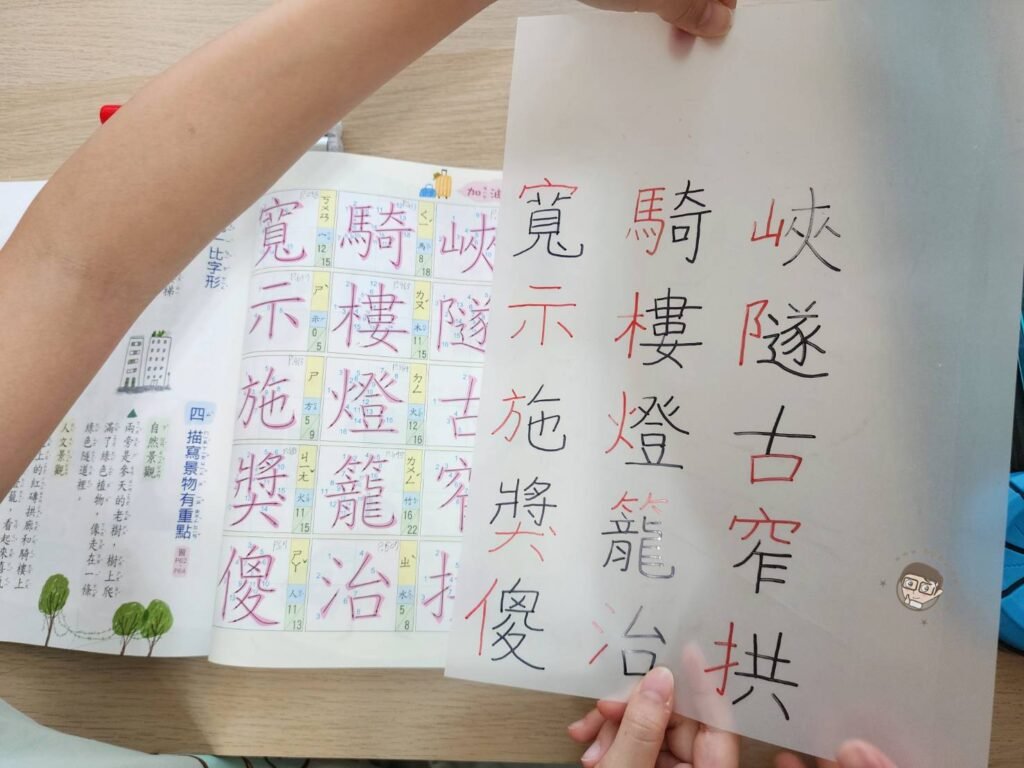 峽隧古窄拱
騎樓燈籠治
寬示施獎傻
加油
峽隧古窄
騎 ㄑㄧˊ 馬 8 18
樓 ㄌㄡˊ 木 11 15
燈 ㄉㄥ 火 12 16
籠 ㄌㄨㄥˊ 竹 16 22
治 ㄓˋ 水 5 8
寬 ㄎㄨㄢ 宀 12 15
示 ㄕˋ 示 0 5
施 ㄕ 方 5 9
獎 ㄐㄧㄤˇ 犬 11 15
傻 ㄕㄚˇ 人 11 13
比字形
梯
四 描寫景物有重點
自然景觀
兩旁是參天的老樹，樹上爬
滿了綠色植物，像走在一條
綠色隧道裡。
人文景觀
上的紅磚拱廊和騎樓上
籠，看起來喜